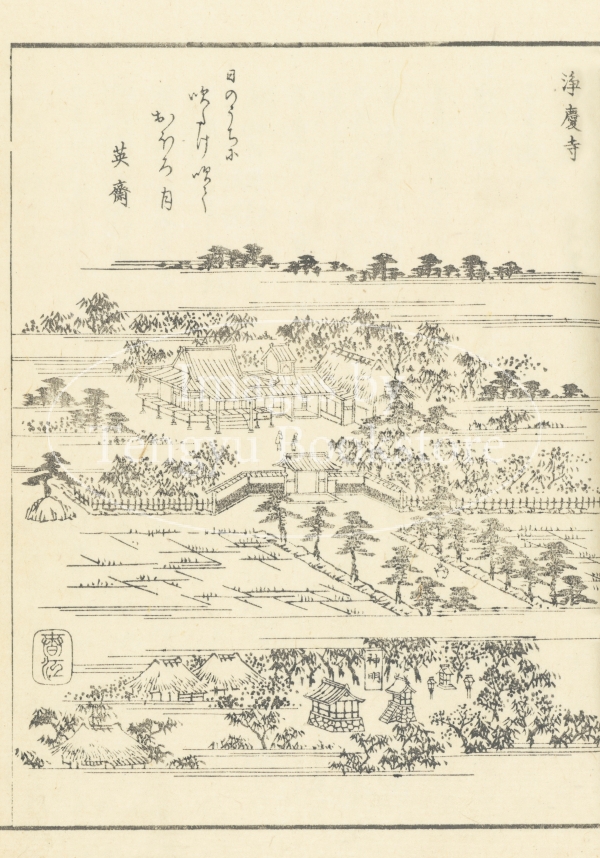 浄慶寺
日のうちに
吹だけ吹て
おぼろ月
英齋
神明
Images by
Tengyu Bookstore